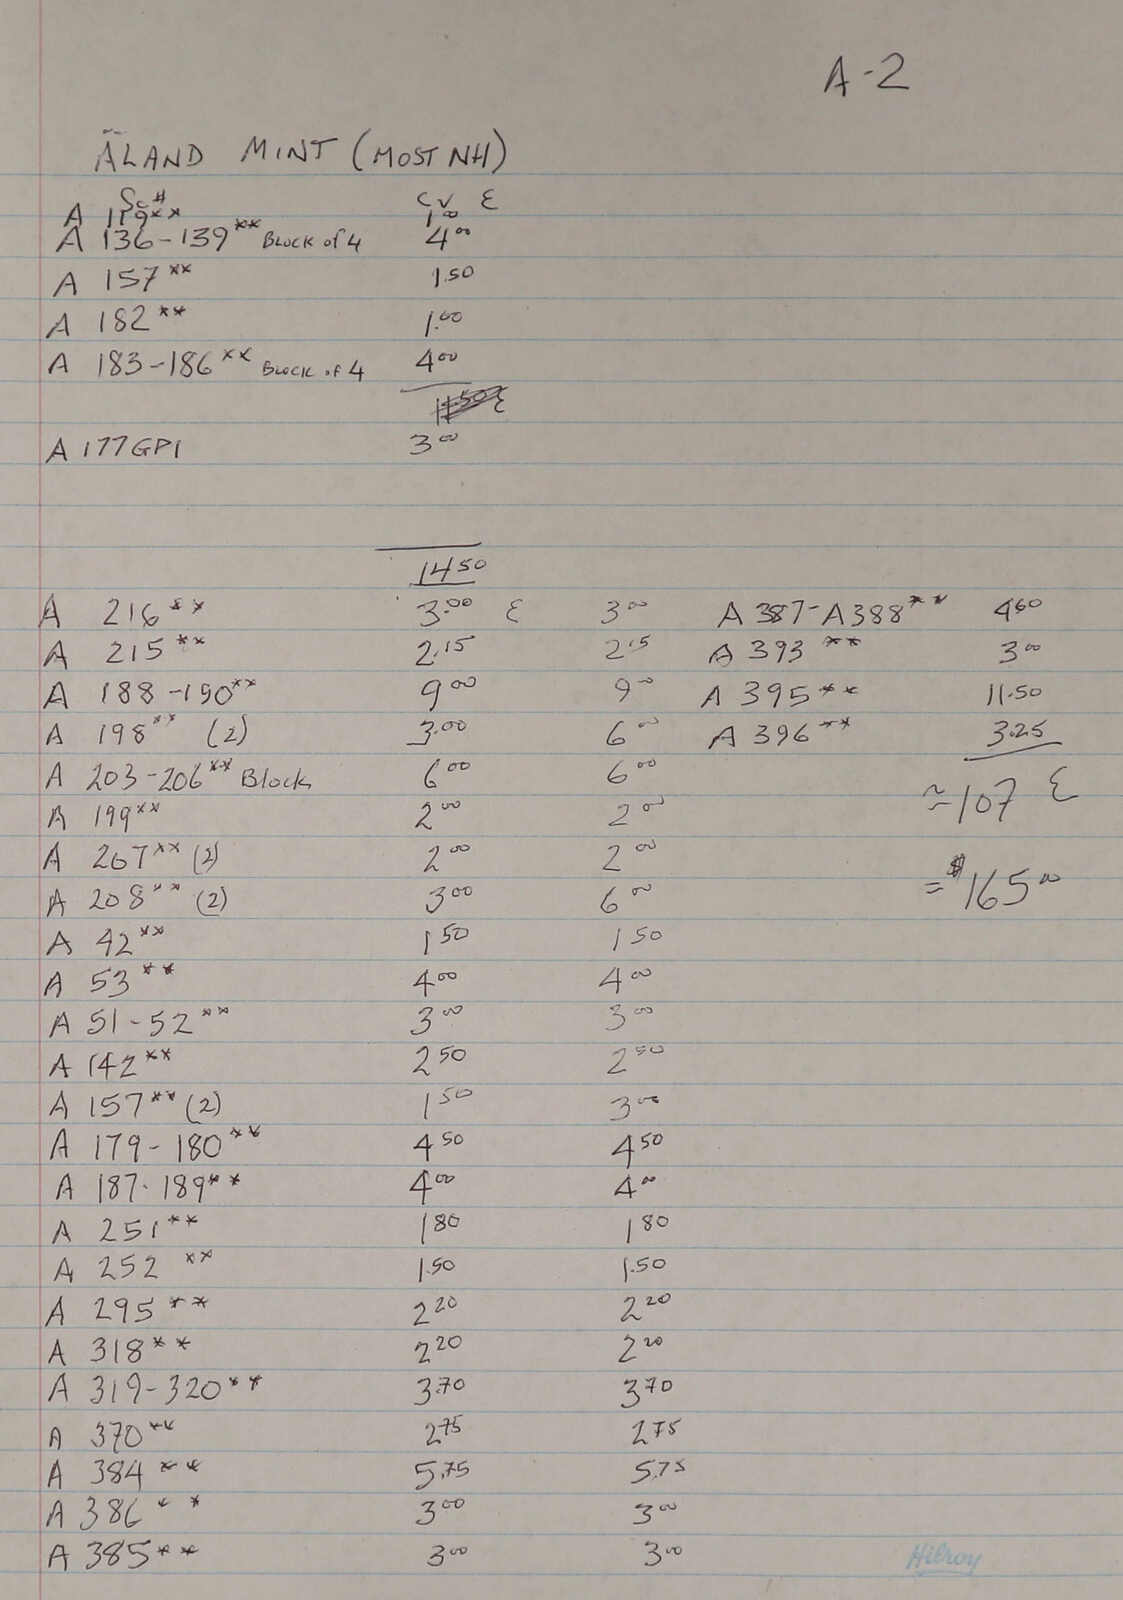 A-2
ÅLAND MINT (MOST NH)
Sc# CV €
A 119** 1.00
A 136-139** BLOCK of 4 4.00
A 157** 1.50
A 182** 1.00
A 183-186** BLOCK of 4 4.00
11.50 €
A 177GP1 3.00
14.50
A 216** 3.00 € 3.00 A 387-A388** 4.60
A 215** 2.15 2.15 A 393** 3.00
A 188-190** 9.00 9.00 A 395** 11.50
A 198** (2) 3.00 6.00 A 396** 3.25
A 203-206** Block 6.00 6.00
≈107 €
A 199** 2.00 2.00
A 207** (2) 2.00 2.00
= $165.00
A 208** (2) 3.00 6.00
A 42** 1.50 1.50
A 53** 4.00 4.00
A 51-52** 3.00 3.00
A 142** 2.50 2.50
A 157** (2) 1.50 3.00
A 179-180** 4.50 4.50
A 187-189** 4.00 4.00
A 251** 1.80 1.80
A 252** 1.50 1.50
A 295** 2.20 2.20
A 318** 2.20 2.20
A 319-320** 3.70 3.70
A 370** 2.75 2.75
A 384** 5.75 5.75
A 386** 3.00 3.00
A 385** 3.00 3.00
Hilroy